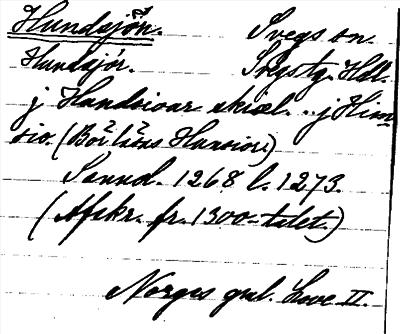 Hundsjön. Svegs sn.
Hundsjór. Svgs tg. Hdl.
j Hundsioar skiæl .. j Him
sio. (Bör läsas Hunsior.)
Sannol. 1268 l. 1273.
(Afskr. fr. 1300-talet.)
Norges gml. Love II.